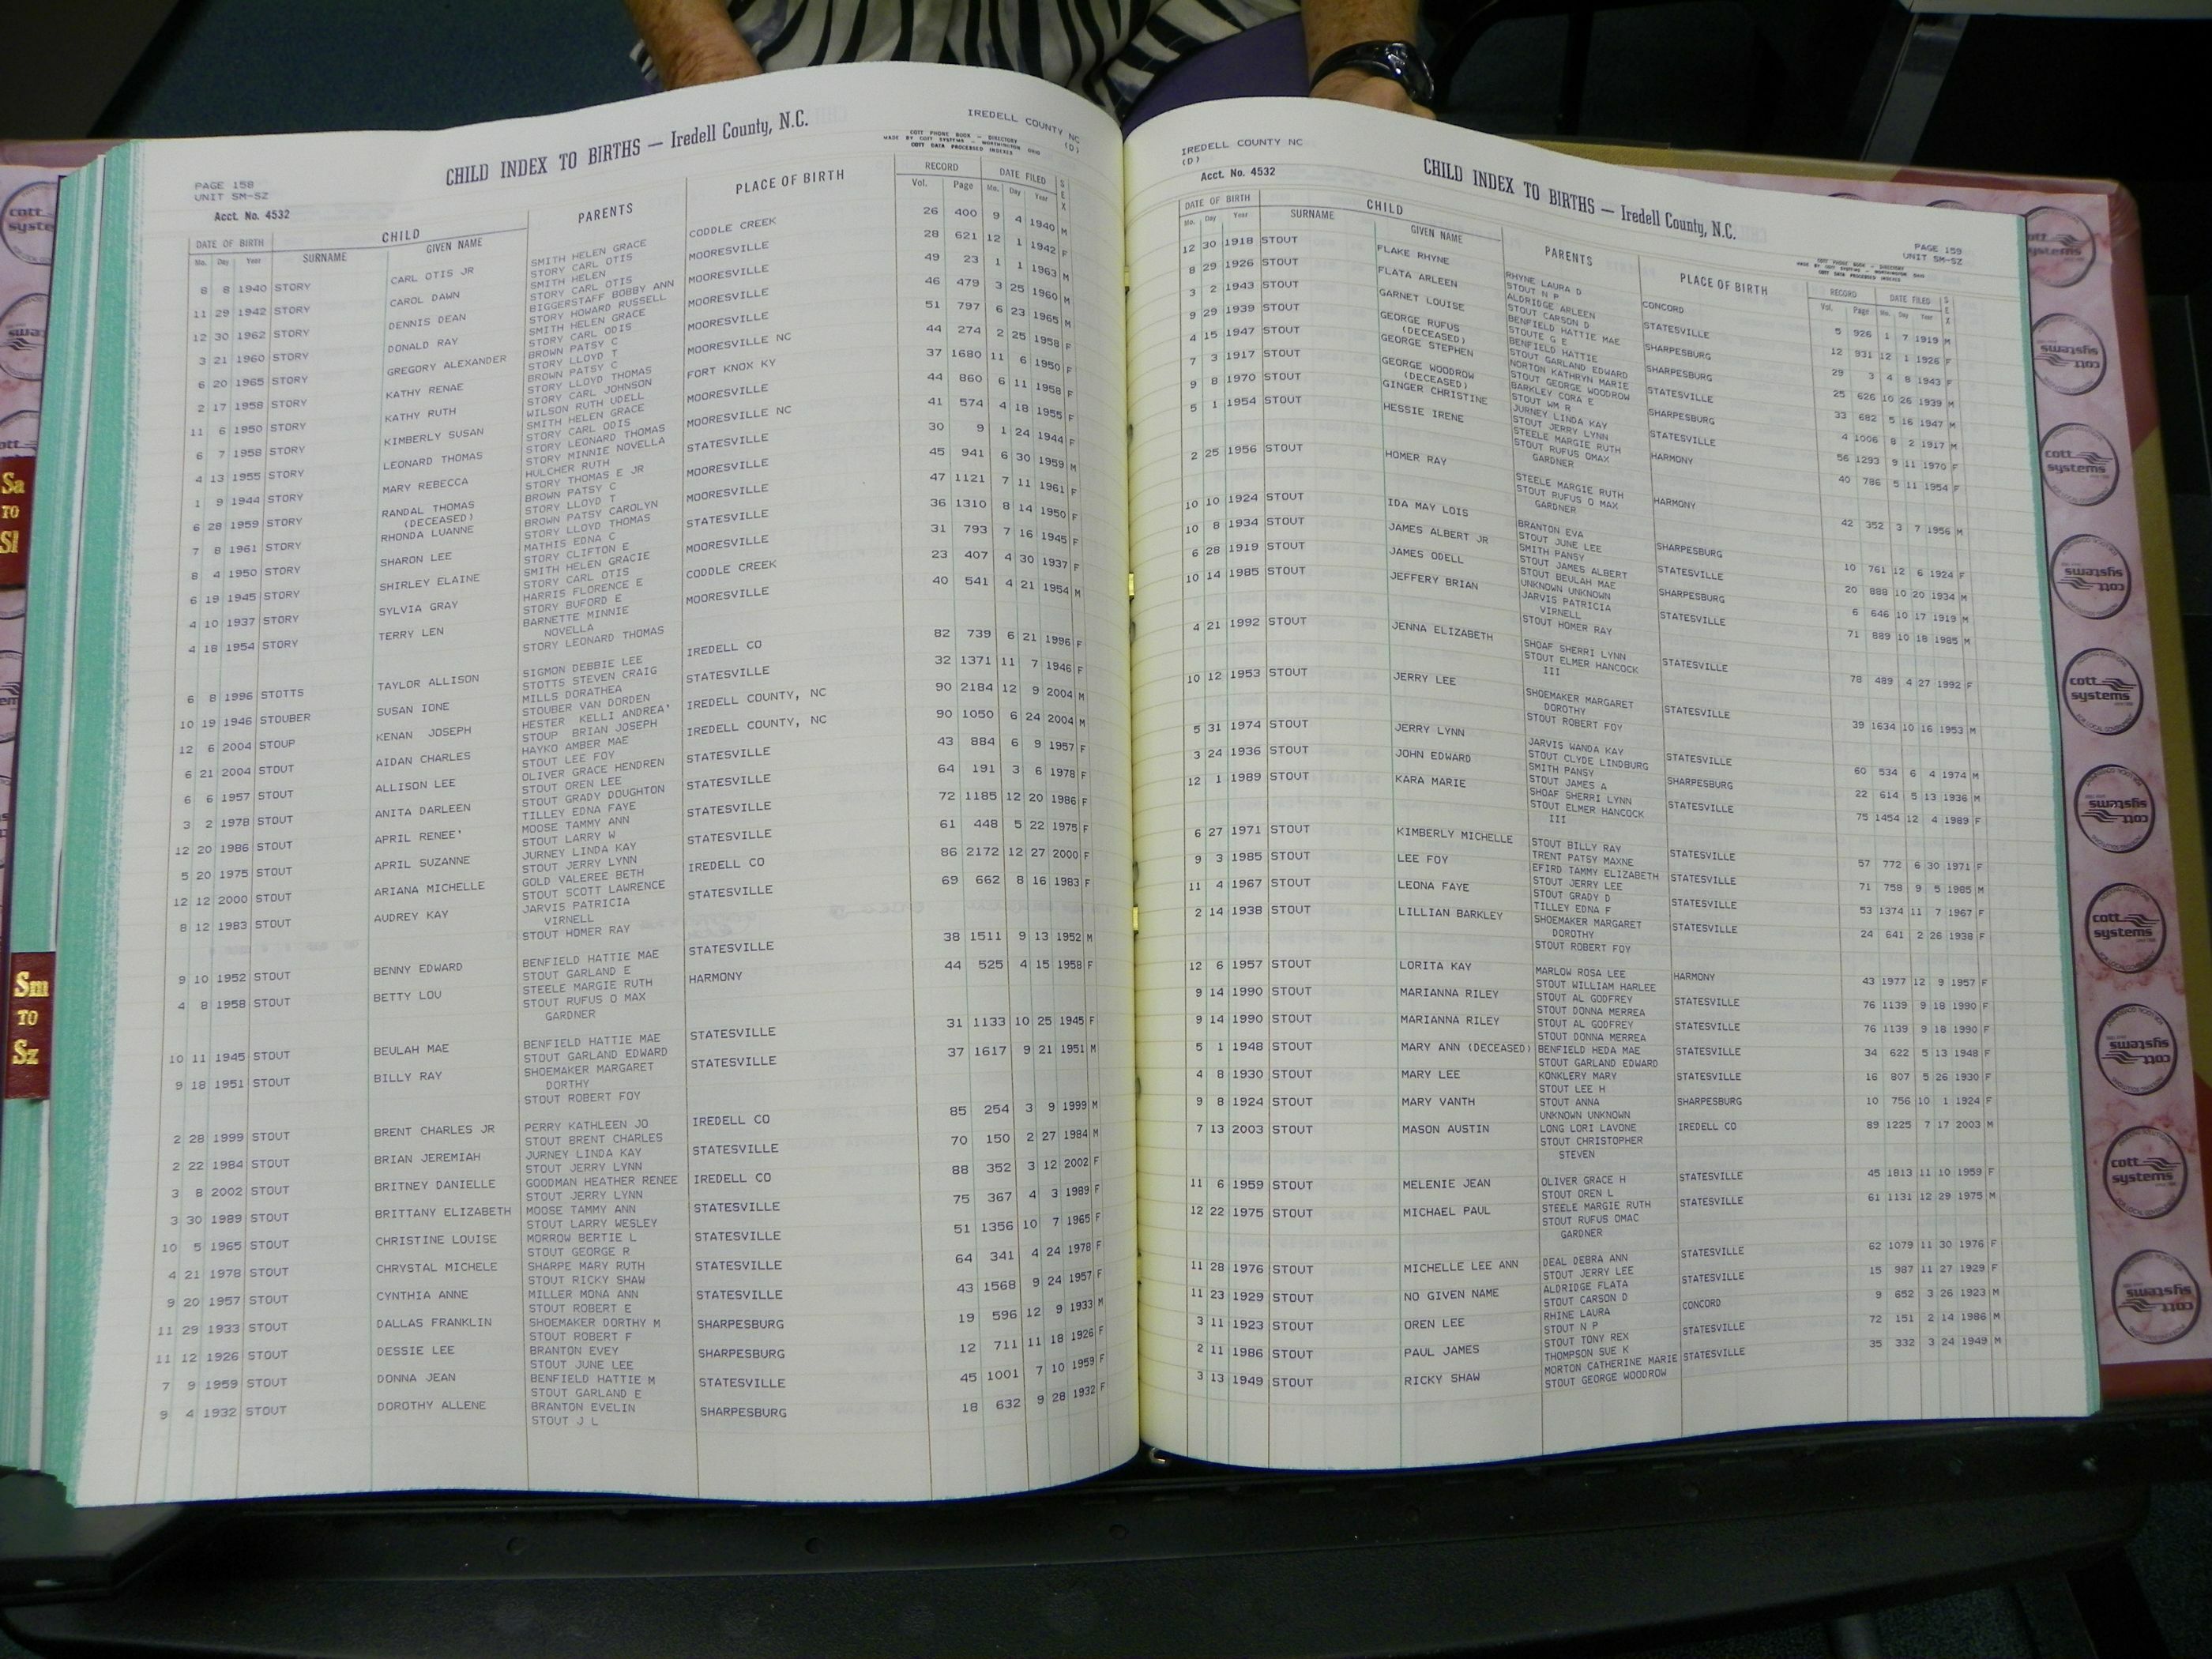 IREDELL COUNTY NC
(D)
CHILD INDEX TO BIRTHS — Iredell County, N.C.
COTT PHONE BOOK - DIRECTORY
MADE BY COTT SYSTEMS - WORTHINGTON OHIO
COTT DATA PROCESSED INDEXES
PAGE 158
UNIT SM-SZ
Acct. No. 4532
DATE OF BIRTH CHILD PARENTS PLACE OF BIRTH RECORD DATE FILED SEX
Mo. Day Year SURNAME GIVEN NAME Vol. Page Mo. Day Year
8 8 1940 STORY CARL OTIS JR SMITH HELEN GRACE CODDLE CREEK 26 400 9 4 1940 M
STORY CARL OTIS
11 29 1942 STORY CAROL DAWN SMITH HELEN MOORESVILLE 28 621 12 1 1942 F
STORY CARL OTIS
12 30 1962 STORY DENNIS DEAN BIGGERSTAFF BOBBY ANN MOORESVILLE 49 23 1 1 1963 M
STORY HOWARD RUSSELL
3 21 1960 STORY DONALD RAY SMITH HELEN GRACE MOORESVILLE 46 479 3 25 1960 M
STORY CARL ODIS
6 20 1965 STORY GREGORY ALEXANDER BROWN PATSY C MOORESVILLE 51 797 6 23 1965 M
STORY LLOYD T
2 17 1958 STORY KATHY RENAE BROWN PATSY C MOORESVILLE NC 44 274 2 25 1958 F
STORY LLOYD THOMAS
11 6 1950 STORY KATHY RUTH STORY CARL JOHNSON FORT KNOX KY 37 1680 11 6 1950 F
WILSON RUTH UDELL
6 7 1958 STORY KIMBERLY SUSAN SMITH HELEN GRACE MOORESVILLE 44 860 6 11 1958 F
STORY CARL ODIS
4 13 1955 STORY LEONARD THOMAS STORY LEONARD THOMAS MOORESVILLE NC 41 574 4 18 1955 F
STORY MINNIE NOVELLA
1 9 1944 STORY MARY REBECCA HULCHER RUTH STATESVILLE 30 9 1 24 1944 F
STORY THOMAS E JR
6 28 1959 STORY RANDAL THOMAS BROWN PATSY C MOORESVILLE 45 941 6 30 1959 M
(DECEASED) STORY LLOYD T
7 8 1961 STORY RHONDA LUANNE BROWN PATSY CAROLYN MOORESVILLE 47 1121 7 11 1961 F
STORY LLOYD THOMAS
8 4 1950 STORY SHARON LEE MATHIS EDNA C STATESVILLE 36 1310 8 14 1950 F
STORY CLIFTON E
6 19 1945 STORY SHIRLEY ELAINE SMITH HELEN GRACIE MOORESVILLE 31 793 7 16 1945 F
STORY CARL OTIS
4 10 1937 STORY SYLVIA GRAY HARRIS FLORENCE E CODDLE CREEK 23 407 4 30 1937 F
STORY BUFORD E
4 18 1954 STORY TERRY LEN BARNETTE MINNIE MOORESVILLE 40 541 4 21 1954 M
NOVELLA
STORY LEONARD THOMAS
6 8 1996 STOTTS TAYLOR ALLISON SIGMON DEBBIE LEE IREDELL CO 82 739 6 21 1996 F
STOTTS STEVEN CRAIG
10 19 1946 STOUBER SUSAN IONE MILLS DORATHEA STATESVILLE 32 1371 11 7 1946 F
STOUBER VAN DORDEN
12 6 2004 STOUP KENAN JOSEPH HESTER KELLI ANDREA' IREDELL COUNTY, NC 90 2184 12 9 2004 M
STOUP BRIAN JOSEPH
6 21 2004 STOUT AIDAN CHARLES HAYKO AMBER MAE IREDELL COUNTY, NC 90 1050 6 24 2004 M
STOUT LEE FOY
6 6 1957 STOUT ALLISON LEE OLIVER GRACE HENDREN STATESVILLE 43 884 6 9 1957 F
STOUT OREN LEE
3 2 1978 STOUT ANITA DARLEEN STOUT GRADY DOUGHTON STATESVILLE 64 191 3 6 1978 F
TILLEY EDNA FAYE
12 20 1986 STOUT APRIL RENEE' MOOSE TAMMY ANN STATESVILLE 72 1185 12 20 1986 F
STOUT LARRY W
5 20 1975 STOUT APRIL SUZANNE JURNEY LINDA KAY STATESVILLE 61 448 5 22 1975 F
STOUT JERRY LYNN
12 12 2000 STOUT ARIANA MICHELLE GOLD VALEREE BETH IREDELL CO 86 2172 12 27 2000 F
STOUT SCOTT LAWRENCE
8 12 1983 STOUT AUDREY KAY JARVIS PATRICIA STATESVILLE 69 662 8 16 1983 F
VIRNELL
STOUT HOMER RAY
9 10 1952 STOUT BENNY EDWARD BENFIELD HATTIE MAE STATESVILLE 38 1511 9 13 1952 M
STOUT GARLAND E
4 8 1958 STOUT BETTY LOU STEELE MARGIE RUTH HARMONY 44 525 4 15 1958 F
STOUT RUFUS O MAX
GARDNER
10 11 1945 STOUT BEULAH MAE BENFIELD HATTIE MAE STATESVILLE 31 1133 10 25 1945 F
STOUT GARLAND EDWARD
9 18 1951 STOUT BILLY RAY SHOEMAKER MARGARET STATESVILLE 37 1617 9 21 1951 M
DORTHY
STOUT ROBERT FOY
2 28 1999 STOUT BRENT CHARLES JR PERRY KATHLEEN JO IREDELL CO 85 254 3 9 1999 M
STOUT BRENT CHARLES
2 22 1984 STOUT BRIAN JEREMIAH JURNEY LINDA KAY STATESVILLE 70 150 2 27 1984 M
STOUT JERRY LYNN
3 8 2002 STOUT BRITNEY DANIELLE GOODMAN HEATHER RENEE IREDELL CO 88 352 3 12 2002 F
STOUT JERRY LYNN
3 30 1989 STOUT BRITTANY ELIZABETH MOOSE TAMMY ANN STATESVILLE 75 367 4 3 1989 F
STOUT LARRY WESLEY
10 5 1965 STOUT CHRISTINE LOUISE MORROW BERTIE L STATESVILLE 51 1356 10 7 1965 F
STOUT GEORGE R
4 21 1978 STOUT CHRYSTAL MICHELE SHARPE MARY RUTH STATESVILLE 64 341 4 24 1978 F
STOUT RICKY SHAW
9 20 1957 STOUT CYNTHIA ANNE MILLER MONA ANN STATESVILLE 43 1568 9 24 1957 F
STOUT ROBERT E
11 29 1933 STOUT DALLAS FRANKLIN SHOEMAKER DORTHY M SHARPESBURG 19 596 12 9 1933 M
STOUT ROBERT F
11 12 1926 STOUT DESSIE LEE BRANTON EVEY SHARPESBURG 12 711 11 18 1926 F
STOUT JUNE LEE
7 9 1959 STOUT DONNA JEAN BENFIELD HATTIE M STATESVILLE 45 1001 7 10 1959 F
STOUT GARLAND E
9 4 1932 STOUT DOROTHY ALLENE BRANTON EVELIN SHARPESBURG 18 632 9 28 1932 F
STOUT J L
IREDELL COUNTY NC
(D)
Acct. No. 4532
CHILD INDEX TO BIRTHS — Iredell County, N.C.
PAGE 159
UNIT SM-SZ
COTT PHONE BOOK - DIRECTORY
MADE BY COTT SYSTEMS - WORTHINGTON OHIO
COTT DATA PROCESSED INDEXES
DATE OF BIRTH CHILD PARENTS PLACE OF BIRTH RECORD DATE FILED SEX
Mo. Day Year SURNAME GIVEN NAME Vol. Page Mo. Day Year
12 30 1918 STOUT FLAKE RHYNE RHYNE LAURA D CONCORD 5 926 1 7 1919 M
STOUT N P
8 29 1926 STOUT FLATA ARLEEN ALDRIDGE ARLEEN STATESVILLE 12 931 12 1 1926 F
STOUT CARSON D
3 2 1943 STOUT GARNET LOUISE BENFIELD HATTIE MAE SHARPESBURG 29 3 4 8 1943 F
STOUTE G E
9 29 1939 STOUT GEORGE RUFUS BENFIELD HATTIE SHARPESBURG 25 626 10 26 1939 M
(DECEASED) STOUT GARLAND EDWARD
4 15 1947 STOUT GEORGE STEPHEN NORTON KATHRYN MARIE STATESVILLE 33 682 5 16 1947 M
STOUT GEORGE WOODROW
7 3 1917 STOUT GEORGE WOODROW BARKLEY CORA E SHARPESBURG 4 1006 8 2 1917 M
(DECEASED) STOUT WM R
9 8 1970 STOUT GINGER CHRISTINE JURNEY LINDA KAY STATESVILLE 56 1293 9 11 1970 F
STOUT JERRY LYNN
5 1 1954 STOUT HESSIE IRENE STEELE MARGIE RUTH HARMONY 40 786 5 11 1954 F
STOUT RUFUS OMAX
GARDNER
2 25 1956 STOUT HOMER RAY STEELE MARGIE RUTH HARMONY 42 352 3 7 1956 M
STOUT RUFUS O MAX
GARDNER
10 10 1924 STOUT IDA MAY LOIS BRANTON EVA SHARPESBURG 10 761 12 6 1924 F
STOUT JUNE LEE
10 8 1934 STOUT JAMES ALBERT JR SMITH PANSY STATESVILLE 20 888 10 20 1934 M
STOUT JAMES ALBERT
6 28 1919 STOUT JAMES ODELL STOUT BEULAH MAE SHARPESBURG 6 646 10 17 1919 M
UNKNOWN UNKNOWN
10 14 1985 STOUT JEFFERY BRIAN JARVIS PATRICIA STATESVILLE 71 889 10 18 1985 M
VIRNELL
STOUT HOMER RAY
4 21 1992 STOUT JENNA ELIZABETH SHOAF SHERRI LYNN STATESVILLE 78 489 4 27 1992 F
STOUT ELMER HANCOCK
III
10 12 1953 STOUT JERRY LEE SHOEMAKER MARGARET STATESVILLE 39 1634 10 16 1953 M
DOROTHY
STOUT ROBERT FOY
5 31 1974 STOUT JERRY LYNN JARVIS WANDA KAY STATESVILLE 60 534 6 4 1974 M
STOUT CLYDE LINDBURG
3 24 1936 STOUT JOHN EDWARD SMITH PANSY SHARPESBURG 22 614 5 13 1936 M
STOUT JAMES A
12 1 1989 STOUT KARA MARIE SHOAF SHERRI LYNN STATESVILLE 75 1454 12 4 1989 F
STOUT ELMER HANCOCK
III
6 27 1971 STOUT KIMBERLY MICHELLE STOUT BILLY RAY STATESVILLE 57 772 6 30 1971 F
TRENT PATSY MAXNE
9 3 1985 STOUT LEE FOY EFIRD TAMMY ELIZABETH STATESVILLE 71 758 9 5 1985 M
STOUT JERRY LEE
11 4 1967 STOUT LEONA FAYE STOUT GRADY D STATESVILLE 53 1374 11 7 1967 F
TILLEY EDNA F
2 14 1938 STOUT LILLIAN BARKLEY SHOEMAKER MARGARET STATESVILLE 24 641 2 26 1938 F
DOROTHY
STOUT ROBERT FOY
12 6 1957 STOUT LORITA KAY MARLOW ROSA LEE HARMONY 43 1977 12 9 1957 F
STOUT WILLIAM HARLEE
9 14 1990 STOUT MARIANNA RILEY STOUT AL GODFREY STATESVILLE 76 1139 9 18 1990 F
STOUT DONNA MERREA
9 14 1990 STOUT MARIANNA RILEY STOUT AL GODFREY STATESVILLE 76 1139 9 18 1990 F
STOUT DONNA MERREA
5 1 1948 STOUT MARY ANN (DECEASED) BENFIELD HEDA MAE STATESVILLE 34 622 5 13 1948 F
STOUT GARLAND EDWARD
4 8 1930 STOUT MARY LEE KONKLERY MARY STATESVILLE 16 807 5 26 1930 F
STOUT LEE H
9 8 1924 STOUT MARY VANTH STOUT ANNA SHARPESBURG 10 756 10 1 1924 F
UNKNOWN UNKNOWN
7 13 2003 STOUT MASON AUSTIN LONG LORI LAVONE IREDELL CO 89 1225 7 17 2003 M
STOUT CHRISTOPHER
STEVEN
11 6 1959 STOUT MELENIE JEAN OLIVER GRACE H STATESVILLE 45 1813 11 10 1959 F
STOUT OREN L
12 22 1975 STOUT MICHAEL PAUL STEELE MARGIE RUTH STATESVILLE 61 1131 12 29 1975 M
STOUT RUFUS OMAC
GARDNER
11 28 1976 STOUT MICHELLE LEE ANN DEAL DEBRA ANN STATESVILLE 62 1079 11 30 1976 F
STOUT JERRY LEE
11 23 1929 STOUT NO GIVEN NAME ALDRIDGE FLATA STATESVILLE 15 987 11 27 1929 F
STOUT CARSON D
3 11 1923 STOUT OREN LEE RHINE LAURA CONCORD 9 652 3 26 1923 M
STOUT N P
2 11 1986 STOUT PAUL JAMES STOUT TONY REX STATESVILLE 72 151 2 14 1986 M
THOMPSON SUE K
3 13 1949 STOUT RICKY SHAW MORTON CATHERINE MARIE STATESVILLE 35 332 3 24 1949 M
STOUT GEORGE WOODROW
Sa
TO
Sl
Sm
TO
Sz
cott
systems